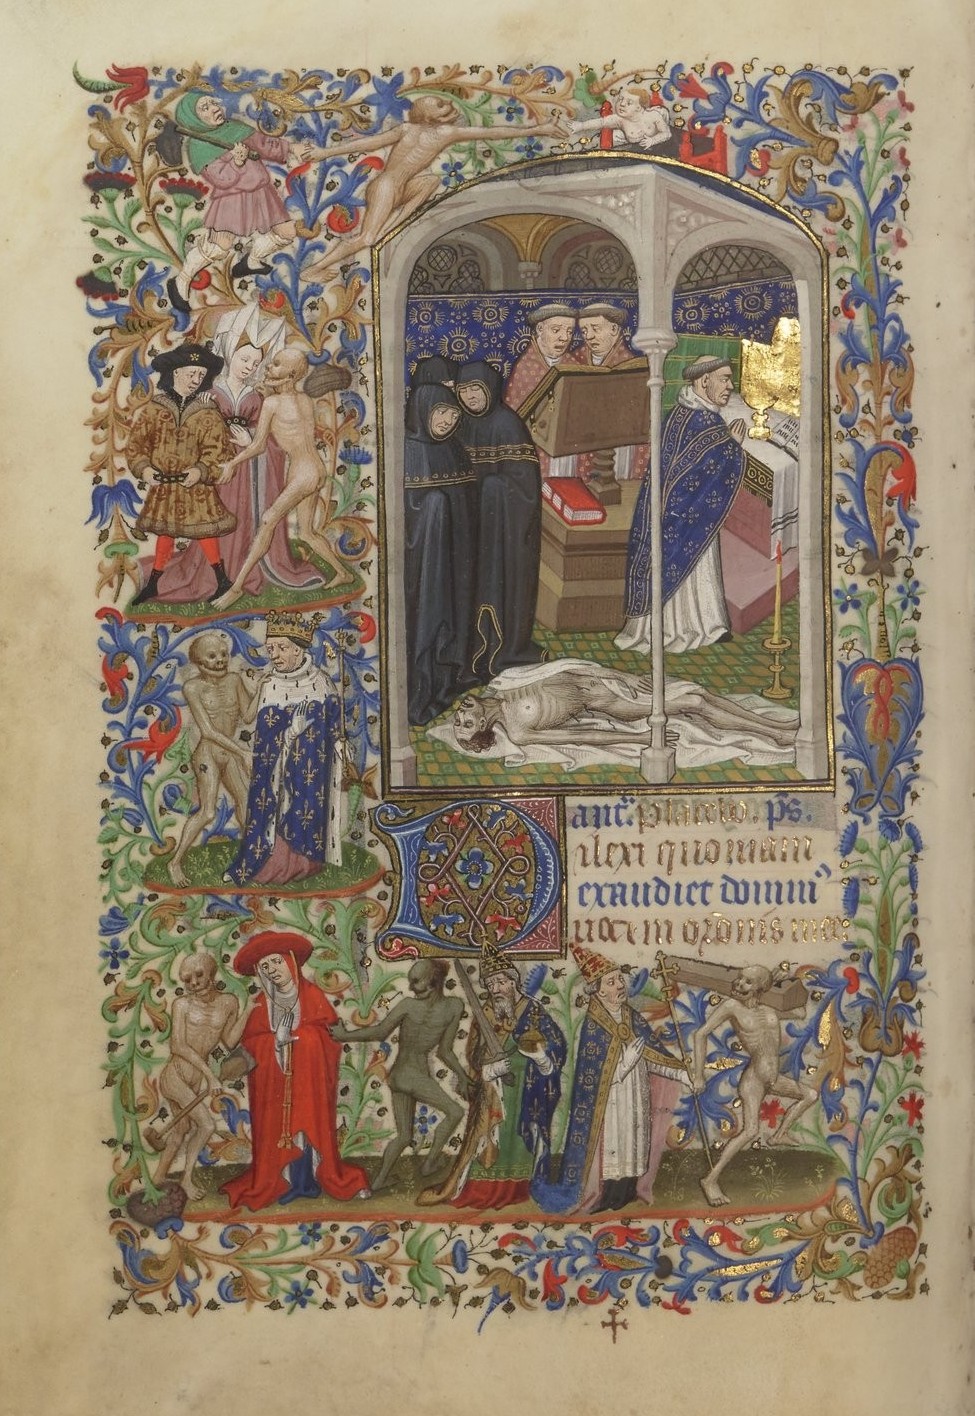 antꝰ. Placebo. p̄s.
Dilexi quoniam
exaudiet domin⁹
vocem orōnis mee